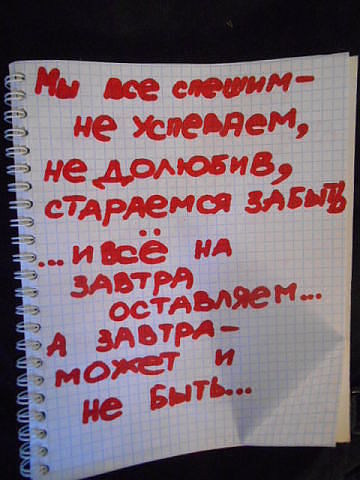 Мы все спешим-
не успеваем,
не долюбив,
стараемся забыть
...и всё на
завтра
оставляем...
А завтра-
может и
не быть...